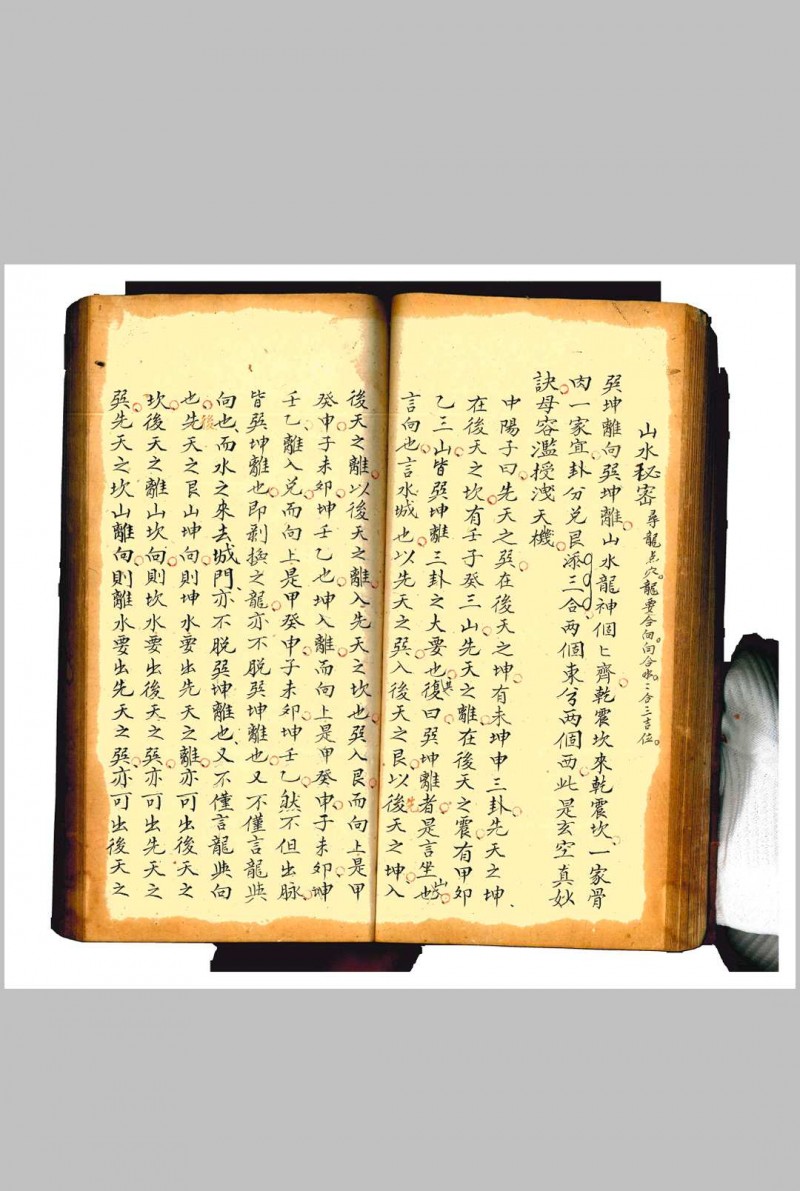 山水秘密 尋龍点穴。龍要合向。向合水。水合三吉位。
巽坤離向巽坤離山水龍神個匕齊乾震坎來乾震坎一家骨
肉一家宜卦分兌艮添三合两個東兮两個西此是玄空真妙
訣毋容濫授洩天機
中陽子曰先天之巽在後天之坤有未坤申三卦先天之坤
在後天之坎有壬子癸三山先天之離在後天之震有甲卯
乙三山皆巽坤離三卦之大要也復曰巽坤離者是言坐山也
言向也言水城也以先天之巽入後天之艮以後天之坤入
後天之離以後天之離入先天之坎也巽入艮而向上是甲
癸申子未卯坤壬乙也坤入離而向上是甲癸申子未卯坤
壬乙離入兌而向上是甲癸申子未卯坤壬乙然不但出脉
皆巽坤離也即剥換之龍亦不脱巽坤離也又不僅言龍與
向也而水之來去城門亦不脱巽坤離也又不僅言龍與向
也後先天之艮山坤向則坤水要出先天之離亦可出後天之
坎後天之離山坎向則坎水要出後天之巽亦可出先天之
巽先天之坎山離向則離水要出先天之巽亦可出後天之